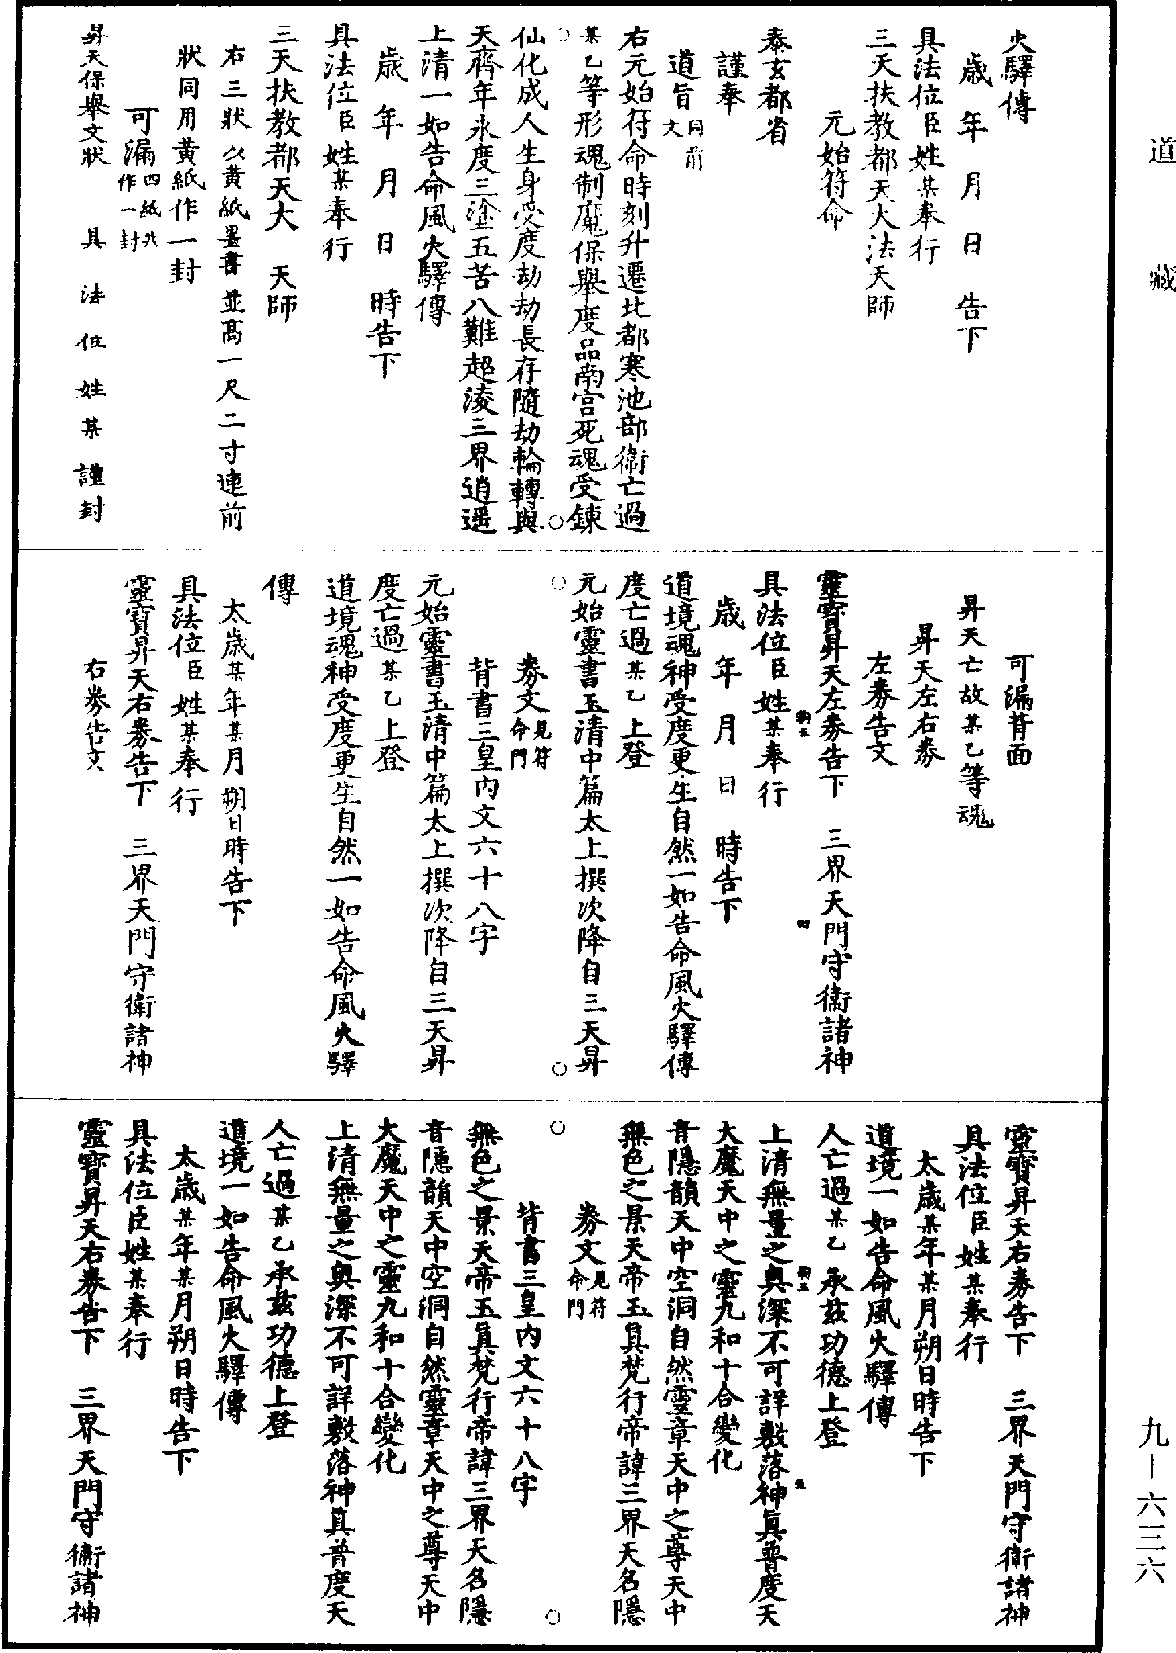 道藏
火驛傳
歲年月日告下
具法位臣姓某奉行
三天扶教都天大法天師
元始符命
泰玄都省
謹奉
道旨同前文
右元始符命時刻升遷北都寒池部衛亡過
某乙等形魂制魔保舉度品南宮死魂受鍊
仙化成人生身受度劫劫長存隨劫輪轉與
天齊年永度三塗五苦八難超淩三界逍遥
上清一如告命風火驛傳
歲年月日時告下
具法位臣姓某奉行
三天扶教都天大 天師
右三狀以黃紙墨書並高一尺二寸連前
狀同用黃紙作一封
可漏四紙共作一封
昇天保舉文狀 具法位姓某謹封
可漏背面
昇天亡故某乙等魂
昇天左右券
左券告文
靈寶昇天左券告下 三界天門守衛諸神
具法位臣姓某奉行
歲年月日時告下
道境魂神受度更生自然一如告命風火驛傳
度亡過某乙上登
元始靈書玉清中篇太上撰次降自三天昇
券文見符命門
背書三皇內文六十八字
元始靈書玉清中篇太上撰次降自三天昇
度亡過某乙上登
道境魂神受度更生自然一如告命風火驛
傳
太歲某年某月朔日時告下
具法位臣姓某奉行
靈寶昇天右券告下 三界天門守衛諸神
右券告文
靈寶昇天右券告下 三界天門守衛諸神
具法位臣姓某奉行
太歲某年某月朔日時告下
道境一如告命風火驛傳
人亡過某乙承茲功德上登
上清無量之奧深不可詳敷落神真普度天
大魔天中之靈九和十合變化
音隱韻天中空洞自然靈章天中之尊天中
無色之景天帝玉真梵行帝諱三界天名隱
券文見符命門
背書三皇內文六十八字
無色之景天帝玉真梵行帝諱三界天名隱
音隱韻天中空洞自然靈章天中之尊天中
大魔天中之靈九和十合變化
上清無量之奧深不可詳敷落神真普度天
人亡過某乙承茲功德上登
道境一如告命風火驛傳
太歲某年某月朔日時告下
具法位臣姓某奉行
靈寶昇天右券告下 三界天門守衛諸神
九—六三六